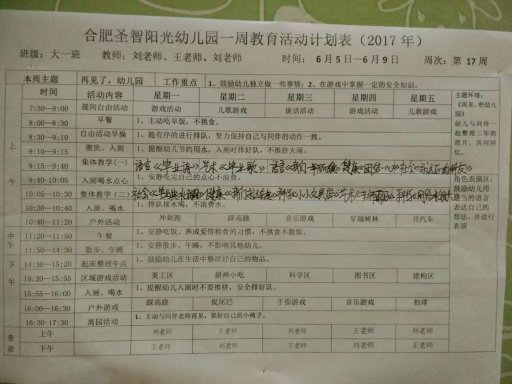 合肥圣智阳光幼儿园一周教育活动计划表（2017 年）
班级：大一班 教师：刘老师、王老师、刘老师 时间： 6 月 5 日—6 月 9 日 周次：第 17 周
本周主题 再见了，幼儿园 工作重点 1、鼓励幼儿独立做一些事情；2、在游戏中掌握一定的安全知识。
时间 活动内容 星期一 星期二 星期三 星期四 星期五
7:30—8:00 晨间自由活动 游戏活动 儿歌游戏 谈话活动 游戏活动 儿歌游戏
8:00—8:30 早餐 1、主动吃早饭，不挑食。
8:30—9:10 自由活动早操 1、能有序的进行排队，努力保持自己与同伴的动作一致。
9:10—9:15 盥洗、入厕 1、提醒幼儿节约用水，入厕时排好队，不推挤打闹。
9:15—9:40 集体教学（一） 语言《毕业诗》 艺术《毕业歌》
9:40—10:05 入厕喝水点心 1、安静吃完自己的点心不浪费。
10:05—10:30 集体教学（二）
10:30—10:40 入厕、喝水 1、排队接水喝，不浪费水。
10:40—11:20 户外活动 冲刺跑 踩高跷 音乐游戏 穿越树林 开汽车
11:20—11:50 午餐 1、安静吃饭、养成爱惜粮食的习惯，不挑食不撒饭。
11:50—14:30 散步、午睡 1、安静散步、午睡，不影响其他幼儿。
14:30—15:20 起床整理午点 1、鼓励幼儿在生活中整理好自己的物品。
15:20—15:55 区域游戏活动 美工区 厨神小吃 科学区 图书区 建构区
15:55—16:00 入厕、喝水 1、提醒幼儿入厕时不要推挤，安全排好队。
16:00—16:30 户外游戏 踩高跷 捉尾巴 手指游戏 音乐游戏 拍球
16:30-17:30 离园活动 1、主动与同伴老师再见，架好自己的小椅子。
上午
中午
下午
带班
上午 刘老师 王老师 刘老师 王老师 刘老师
下午 王老师 刘老师 王老师 刘老师 王老师
主题环境：
《再见，吧幼儿园》
幼儿与同伴一起整理三年的照片，共同回忆。
角色表演区：
鼓励幼儿用适当的语言表达自己的想法，并进行表演